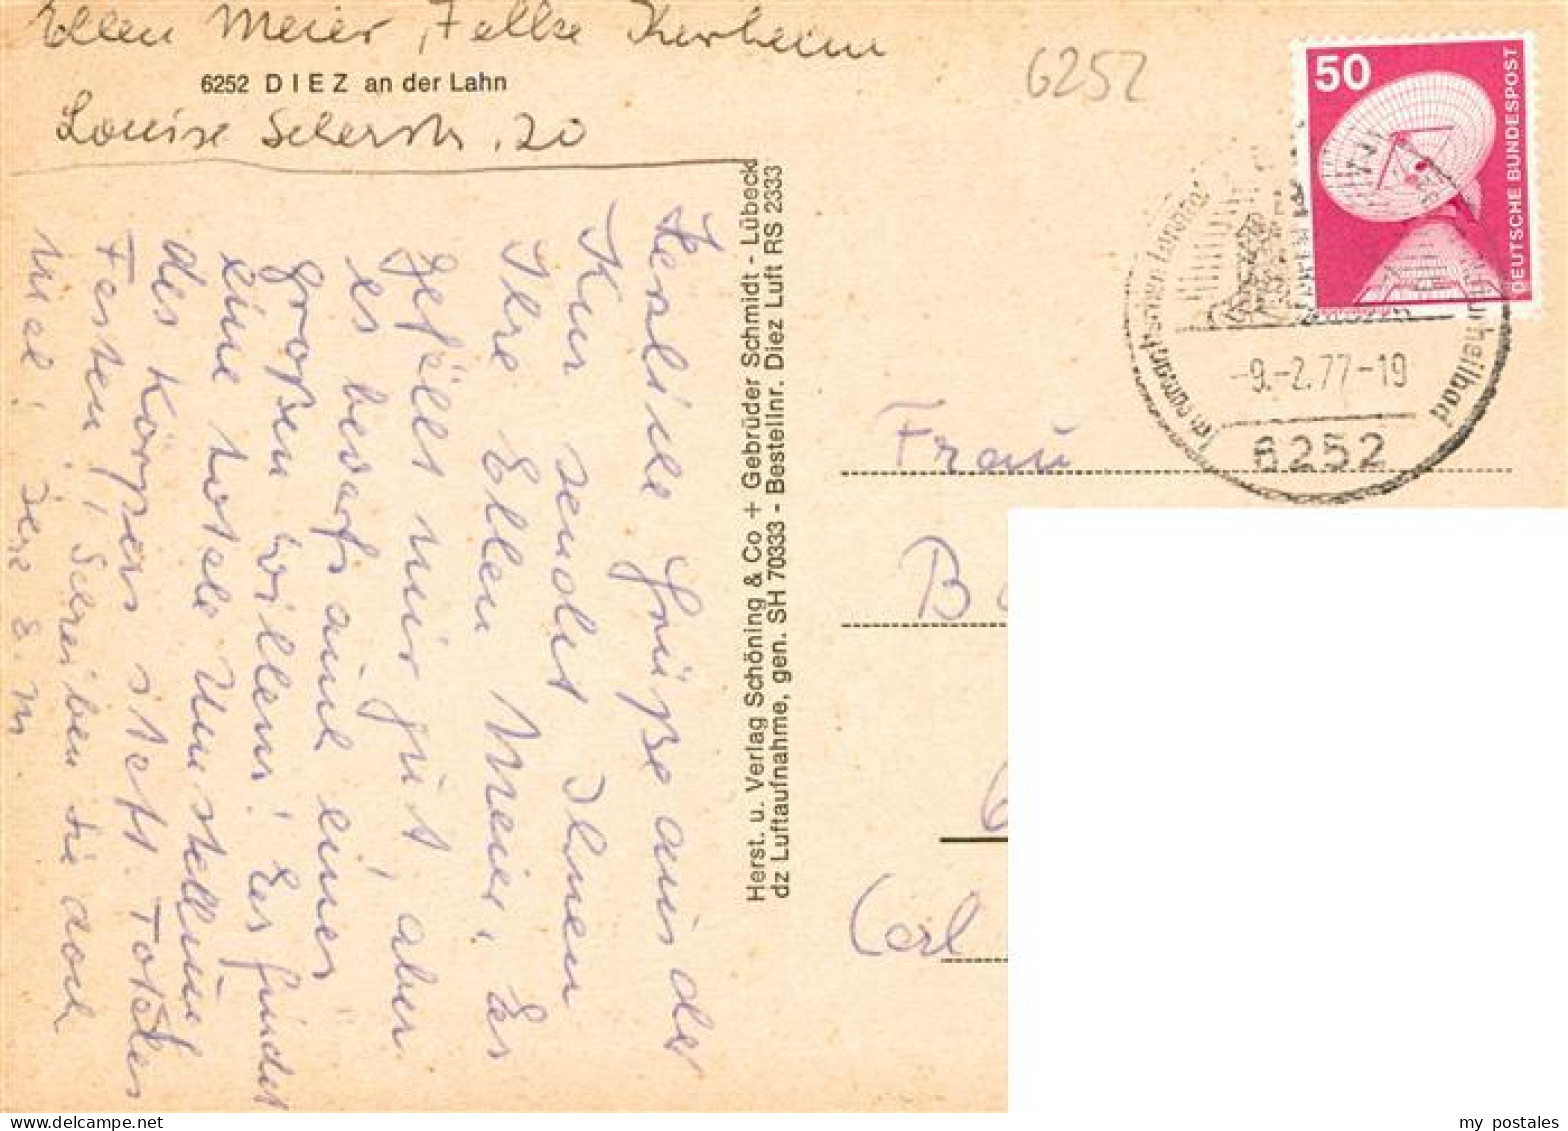 Ellen Meier, Felke Kurheim
6252 DIEZ an der Lahn
Louise Seherstr. 20
6252
50
DEUTSCHE BUNDESPOST
-9.-2.77-19
6252
Herzliche Grüße aus der
Kur sendet Ihnen
Ihre Ellen Meier. Es
gefällt mir gut, aber
es bedarf auch eines
großen Willens! Es findet
eine totale Umstellung
des Körpers statt. Totales
Fasten, Schreiben Sie doch
mal! Ihre E. M
Herst. u. Verlag Schöning & Co + Gebrüder Schmidt - Lübeck
dz Luftaufnahme, gen. SH 70333 - Bestellnr. Diez Luft RS 2333
Frau
B
6
Carl
my postales